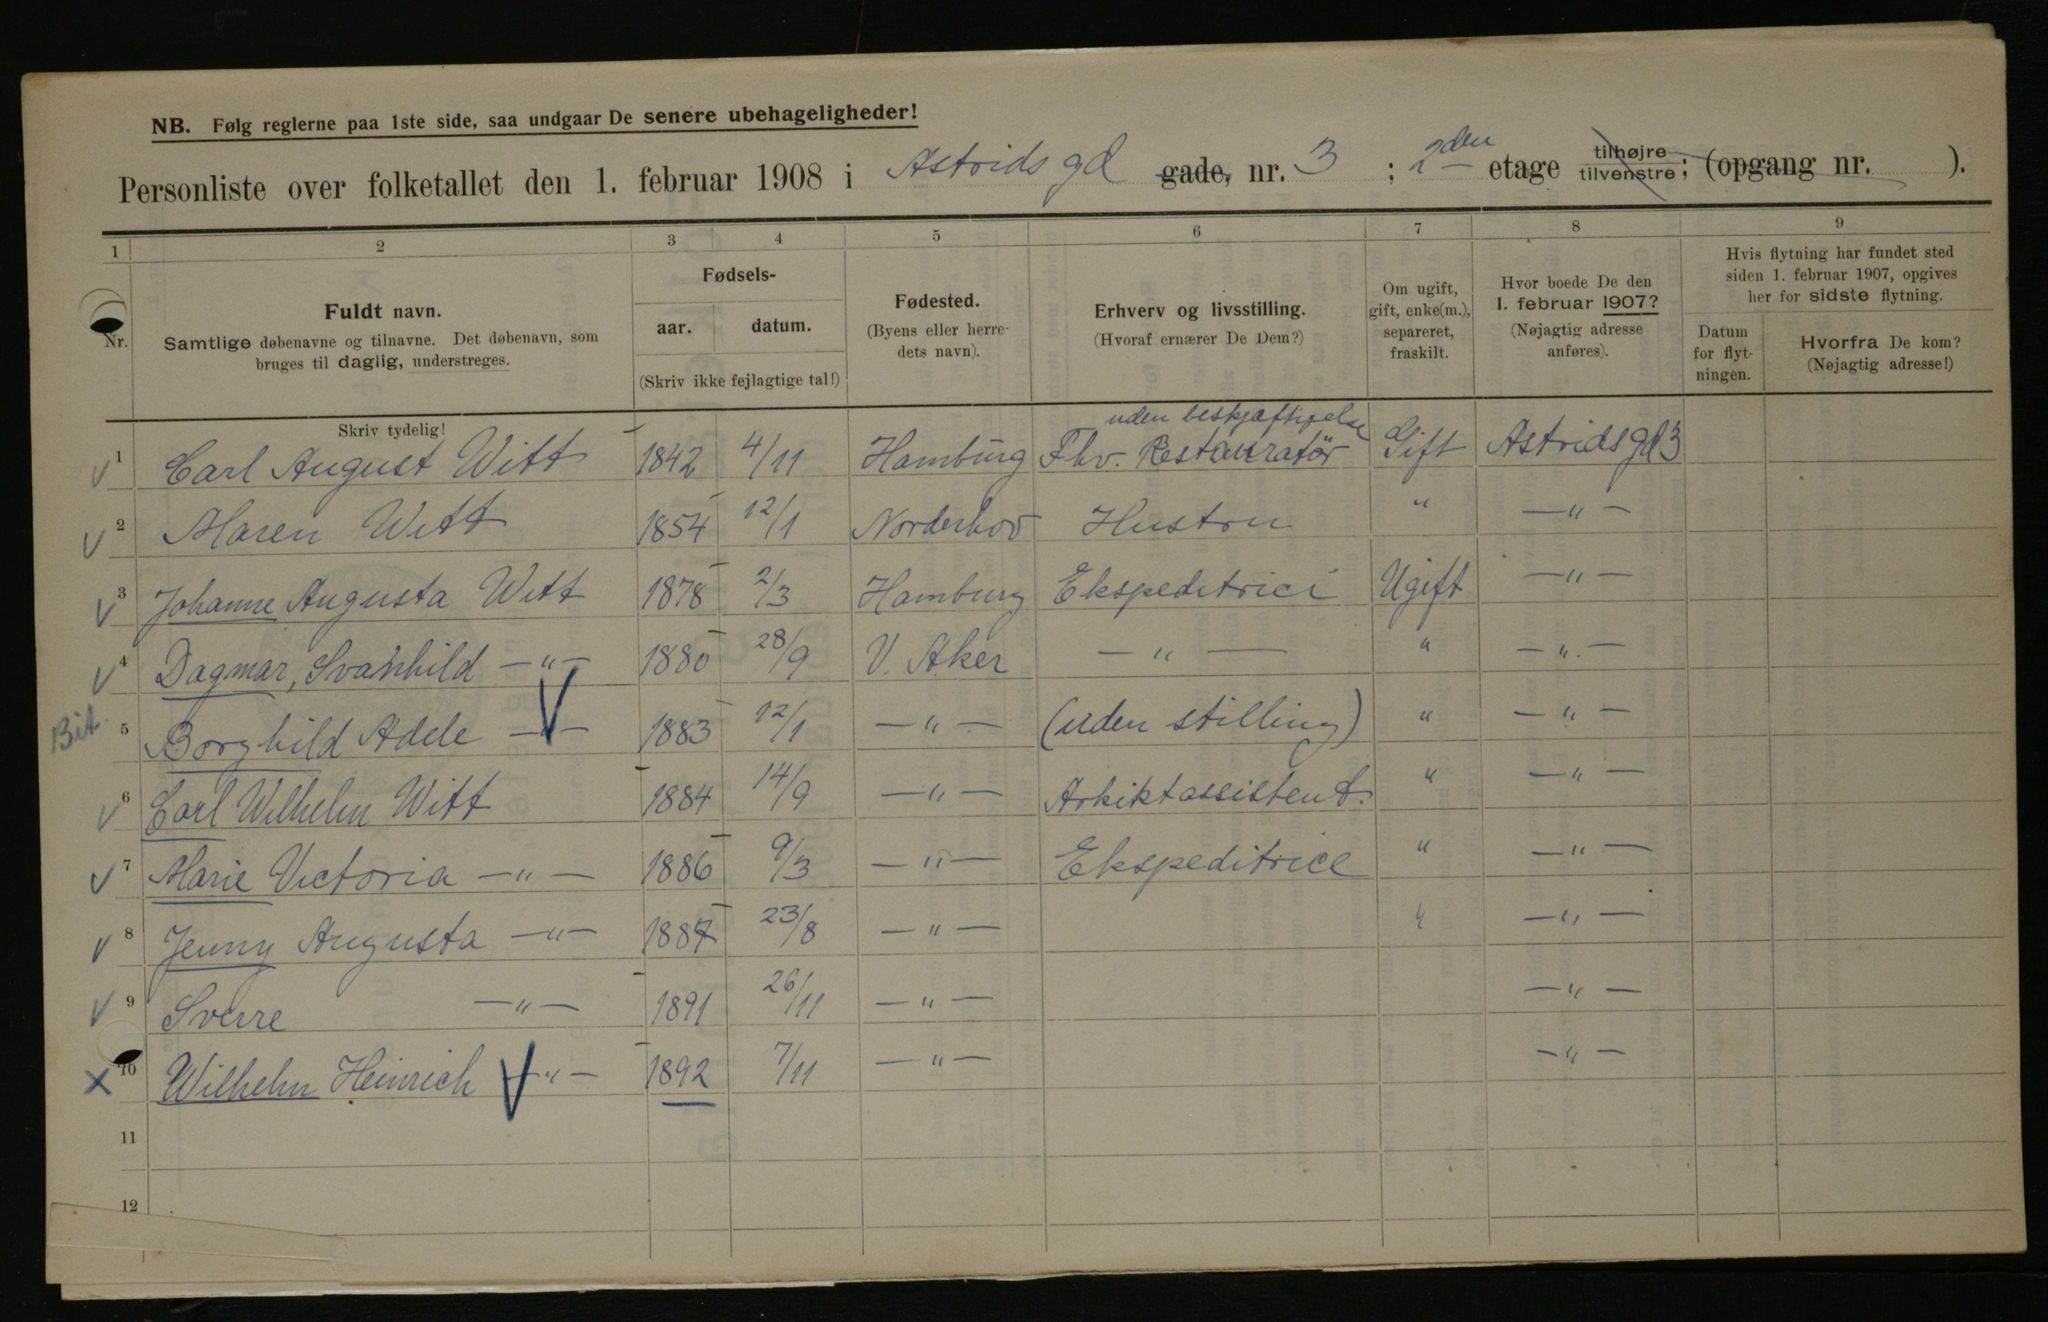 NB. Følg reglerne paa 1ste side, saa undgaar De senere ubehageligheder!
Personliste over folketallet den 1. februar 1908 i Astrids gd gade, nr. 3 ; 2den etage tilhøjre tilvenstre ; (opgang nr. ).
1 2 3 4 5 6 7 8 9
Nr.
Fuldt navn.
Samtlige døbenavne og tilnavne. Det døbenavn, som
bruges til daglig, understreges.
Fødsels-
aar. datum.
(Skriv ikke fejlagtige tal!)
Fødested.
(Byens eller herre-
dets navn).
Erhverv og livsstilling.
(Hvoraf ernærer De Dem?)
Om ugift,
gift, enke(m.),
separeret,
fraskilt.
Hvor boede De den
1. februar 1907?
(Nøjagtig adresse
anføres).
Hvis flytning har fundet sted
siden 1. februar 1907, opgives
her for sidste flytning.
Datum
for flyt-
ningen.
Hvorfra De kom?
(Nøjagtig adresse!)
Skriv tydelig!
uden beskjæftigelse
1 Carl August Witt 1842 4/11 Hamburg Fhv. Restauratør Gift Astrids gd 3
2 Maren Witt 1854 12/1 Norderhov Hustru " —"—
3 Johanne Augusta Witt 1878 2/3 Hamburg Ekspeditrice Ugift —"—
4 Dagmar, Svanhild —"— 1880 28/9 V. Aker —"— " —"—
Bit. 5 Borghild Adele —"— 1883 12/1 —"— (uden stilling) " —"—
6 Carl Wilhelm Witt 1884 14/9 —"— Arkiktassistent. " —"—
7 Marie Victoria —"— 1886 9/3 —"— Ekspeditrice " —"—
8 Jenny Augusta —"— 1887 23/8 —"— " —"—
9 Sverre —"— 1891 26/11 —"— —"—
10 Wilhelm Heinrich —"— 1892 7/11 —"— —"—
11
12